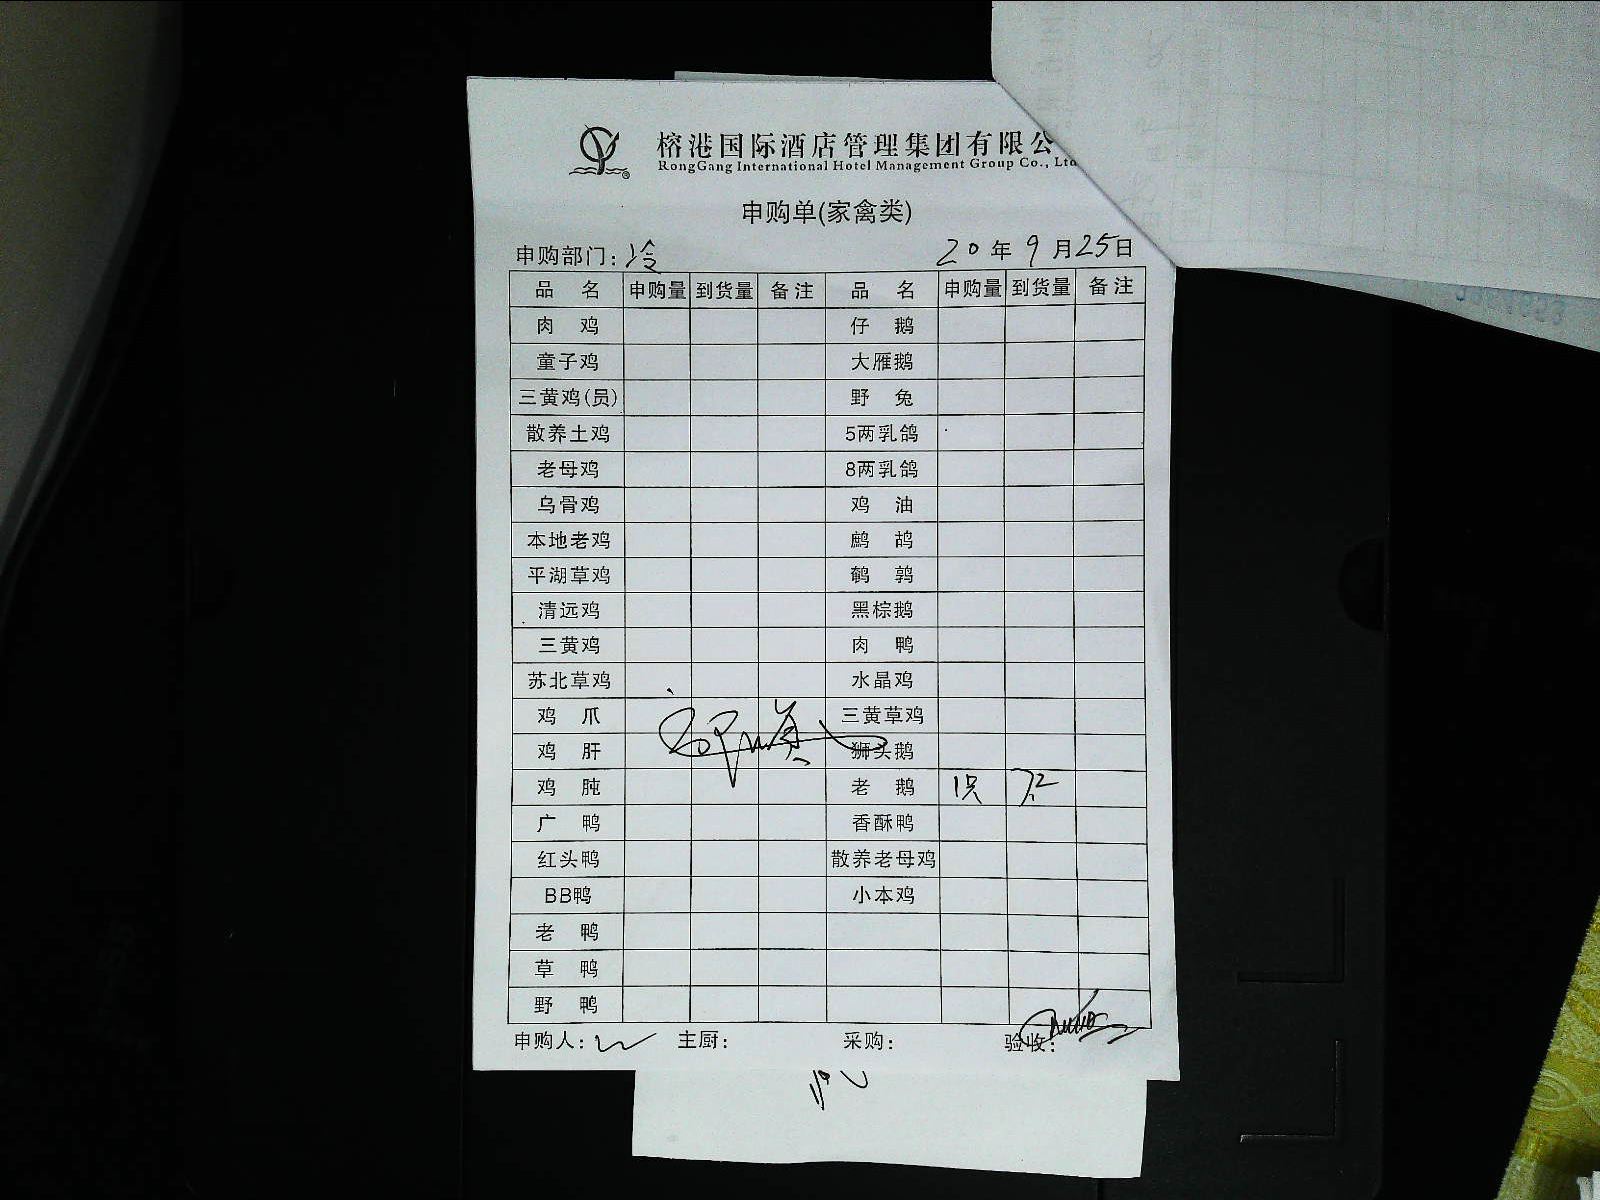 榕港国际酒店管理集团有限公
RongGang International Hotel Management Group Co., Ltd
申购单(家禽类)
申购部门: 冷 20年9月25日
品名 申购量 到货量 备注 品名 申购量 到货量 备注
肉鸡 仔鹅
童子鸡 大雁鹅
三黄鸡(员) 野兔
散养土鸡 5两乳鸽
老母鸡 8两乳鸽
乌骨鸡 鸡油
本地老鸡 鹧鸪
平湖草鸡 鹌鹑
清远鸡 黑棕鹅
三黄鸡 肉鸭
苏北草鸡 水晶鸡
鸡爪 三黄草鸡
鸡肝 狮头鹅
鸡肫 老鹅 1只 7.2
广鸭 香酥鸭
红头鸭 散养老母鸡
BB鸭 小本鸡
老鸭
草鸭
野鸭
申购人: 主厨: 采购: 验收: